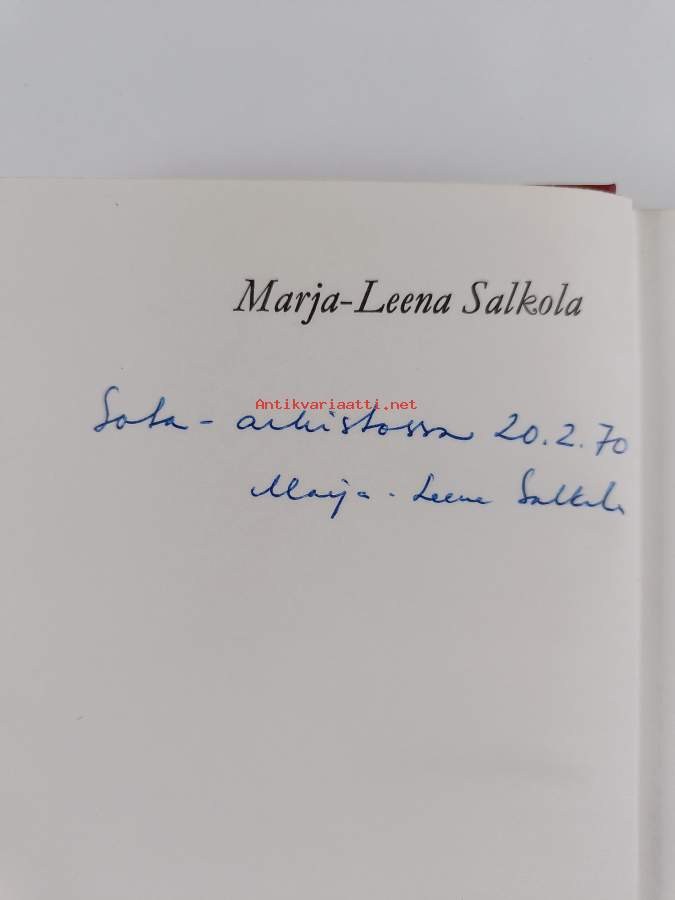 Marja-Leena Salkola
Antikvariaatti.net
Sota-arkistossa 20.2.70
Marja-Leena Salkola